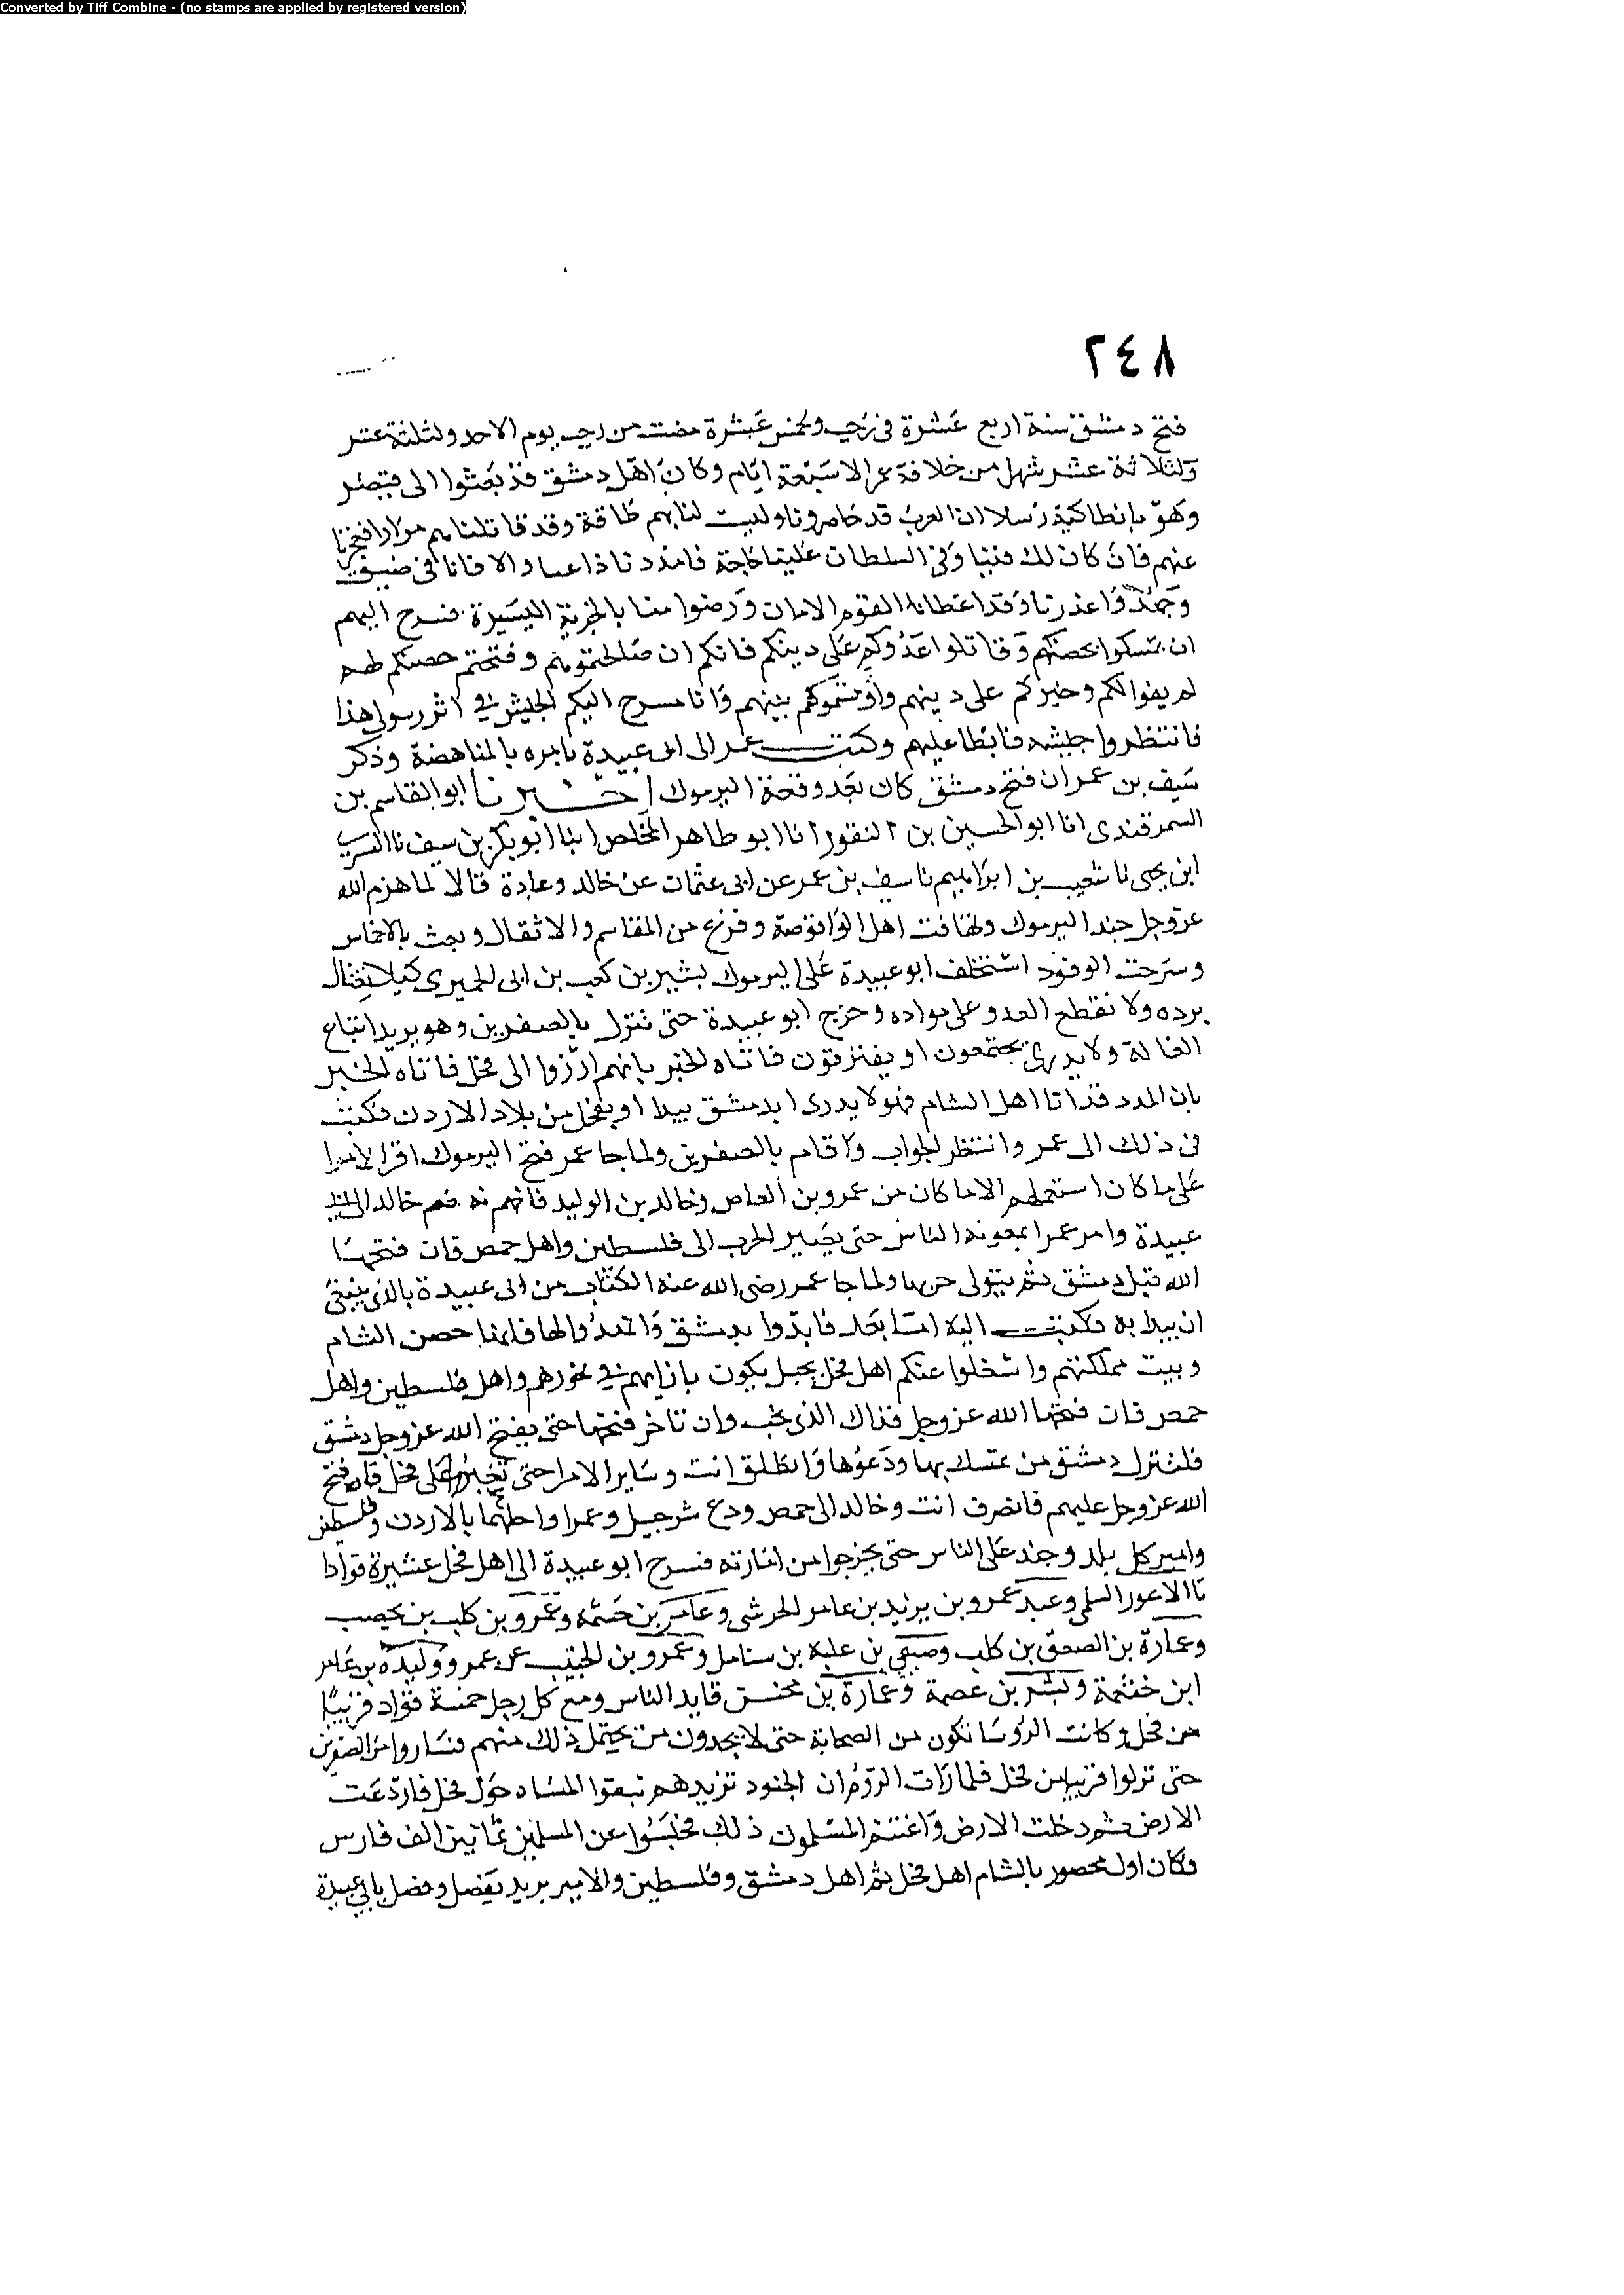 Converted by Tiff Combine - (no stamps are applied by registered version)
٢٤٨
فتح دمشق سنة اربع عشرة في رجب ولخمس عشرة مضت من رجب يوم الاحد ولثلثة عشر
ولثلاثة عشر شهرا من خلافة عمر الا سبعة ايام وكان اهل دمشق قد بعثوا الى قيصر
وهو بانطاكية رسلا ان العرب قد حاصرونا وليست لنا بهم طاقة وقد قاتلناهم مرارا فعجزنا
عنهم فان كان لك فينا وفي السلطان علينا حاجة فامددنا والا فانا في ضيق
وجهد واعذرنا وقد اعطانا القوم الامان ورضوا منا بالجزية اليسيرة فسرح اليهم
ان تمسكوا بحصنكم وقاتلوا عدوكم على دينكم فانكم ان صالحتموهم وفتحتم حصنكم لهم
لم يفوا لكم وخيركم على دينهم واقتسموكم بينهم وانا مسرح اليكم الجيش في اثر رسولي هذا
فانتظروا جيشه فابطا عليهم وكتب عمر الى ابي عبيدة يامره بالمناهضة وذكر
سيف بن عمر ان فتح دمشق كان بعد وقعة اليرموك اخبرنا ابو القاسم بن
السمرقندي انا ابو الحسين بن النقور انا ابو طاهر المخلص ابنا ابو بكر بن سيف نا السري
ابن يحيى نا شعيب بن ابراهيم نا سيف بن عمر عن ابي عثمان عن خالد وعبادة قالا لما هزم الله
عز وجل جند اليرموك وتهافت اهل الواقوصة وفرغ من المقاسم والاثقال وبعث بالاخماس
وسرحت الوفود استخلف ابو عبيدة على اليرموك بشير بن كعب بن ابي الحميري كيلا يغتال
برده ولا تقطع العدو على مواده وخرج ابو عبيدة حتى تنزل بالصفرين وهو يريد اتباع
الفالة ولا يدري يجتمعون او يفترقون فاتاه الخبر بانهم ارزوا الى فحل فاتاه الخبر
بان المدد قد اتا اهل الشام فهو لا يدري ابدمشق يبدا او بفحل من بلاد الاردن فكتب
في ذلك الى عمر وانتظر الجواب واقام بالصفرين ولما جا عمر فتح اليرموك اقر الامرا
على ما كان استعملهم الا ما كان من عمرو بن العاص وخالد بن الوليد فانه ضم خالد الى ابي
عبيدة وامر عمرا بمعونة الناس حتى يصير الحرب الى فلسطين واهل حمص فان فتحها
الله قبل دمشق ثم يتولى حربها ولما جا عمر رضي الله عنه الكتاب من ابي عبيدة بالذي ينبغي
ان يبدا به فكتب اليه اما بعد فابدوا بدمشق وانهدوا لها فانها حصن الشام
وبيت مملكتهم واشغلوا عنكم اهل فحل بخيل يكون بازايهم في نحورهم واهل فلسطين واهل
حمص فان فتحها الله عز وجل فذاك الذي نحب وان تاخر فتحها حتى يفتح الله عز وجل دمشق
فلننزل دمشق من عسك بها ودعوها وانطلق انت وساير الامرا حتى تغيروا على فحل فان فتح
الله عز وجل عليهم فانصرف انت وخالد الى حمص ودع شرحبيل وعمرا واخلهما بالاردن وفلسطين
وامير كل بلد وجند على الناس حتى يخرجوا من امارته فسرح ابو عبيدة الى اهل فحل عشيرة قوادا
نا الاعور السلمي وعبد عمرو بن يزيد بن عامر الجرشي وعامر بن حثمة وعمرو بن كلب بن يحصب
وعمارة بن الصعق بن كلب وصيفي بن علبة بن سنامل وعمرو بن الحبيب عن عمر وولبدة بن عامر
ابن خثعمة وبشر بن عصمة وعمارة بن مخش قايد الناس ومع كل رجل خمسة قواد قريبا
من فحل وكانت الروسا تكون من الصحابة حتى لا يجدون من يحتمل ذلك منهم فساروا من الصفرين
حتى نزلوا قريبا من فحل فلما رات الروم ان الجنود تزيدهم بثقوا المياه حول فحل فاردغت
الارض ثم دخلت الارض واغتنم المسلمون ذلك فحبسوا عن المسلمين ثمانين الف فارس
وكان اول محصور بالشام اهل فحل ثم اهل دمشق وفلسطين والامير يريد يفصل وفصل بابي عبيدة